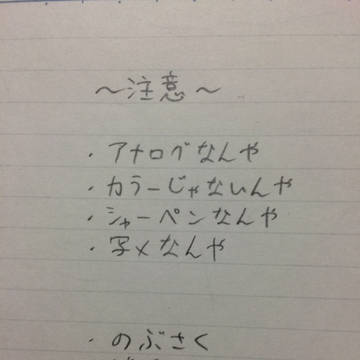 ～注意～
・アナログなんや
・カラーじゃないんや
・シャーペンなんや
・写メなんや
・のぶさく